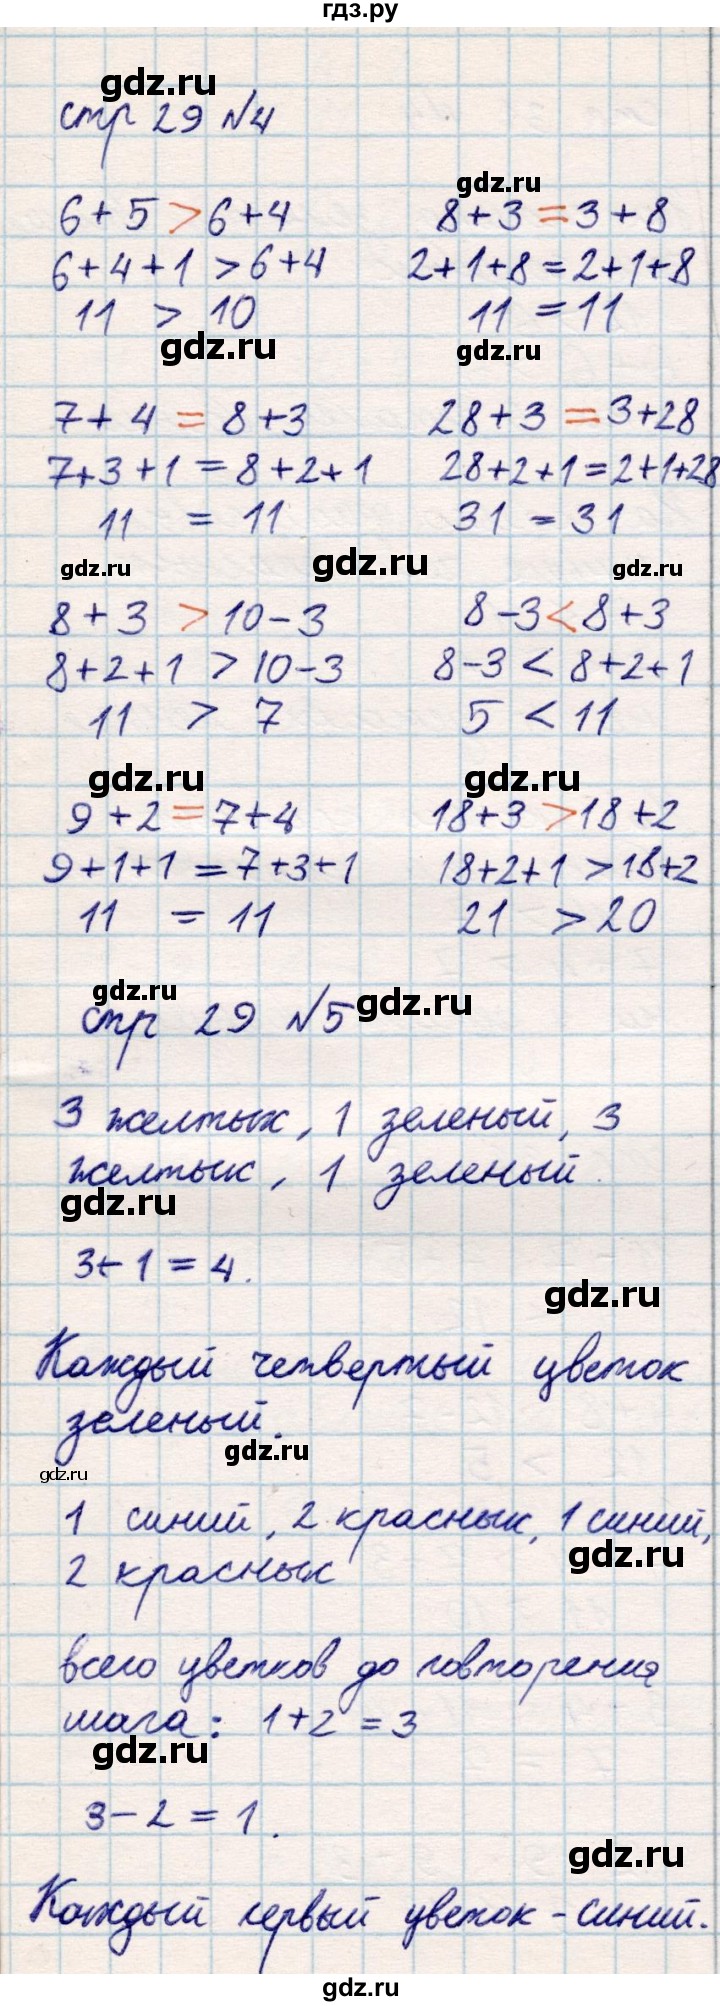 гдз.ру
gdz.ru
стр 29 №4
gdz.ru
6+5 > 6+4 8+3 = 3+8
6+4+1 > 6+4 2+1+8 = 2+1+8
11 > 10 11 = 11
gdz.ru gdz.ru
7+4 = 8+3 28+3 = 3+28
7+3+1 = 8+2+1 28+2+1 = 2+1+28
11 = 11 31 = 31
gdz.ru gdz.ru gdz.ru
8+3 > 10-3 8-3 < 8+3
8+2+1 > 10-3 8-3 < 8+2+1
11 > 7 5 < 11
gdz.ru gdz.ru
9+2 = 7+4 18+3 > 18+2
9+1+1 = 7+3+1 18+2+1 > 18+2
11 = 11 21 > 20
gdz.ru gdz.ru
стр 29 №5
3 желтых, 1 зеленый, 3
желтых, 1 зеленый.
gdz.ru
3+1=4.
gdz.ru
Каждый четвертый цветок
зеленый.
gdz.ru
gdz.ru
1 синий, 2 красных, 1 синий,
gdz.ru
2 красных
всего цветков до повторения
шага: 1+2=3
gdz.ru
3-2=1.
gdz.ru
Каждый первый цветок - синий.
gdz.ru